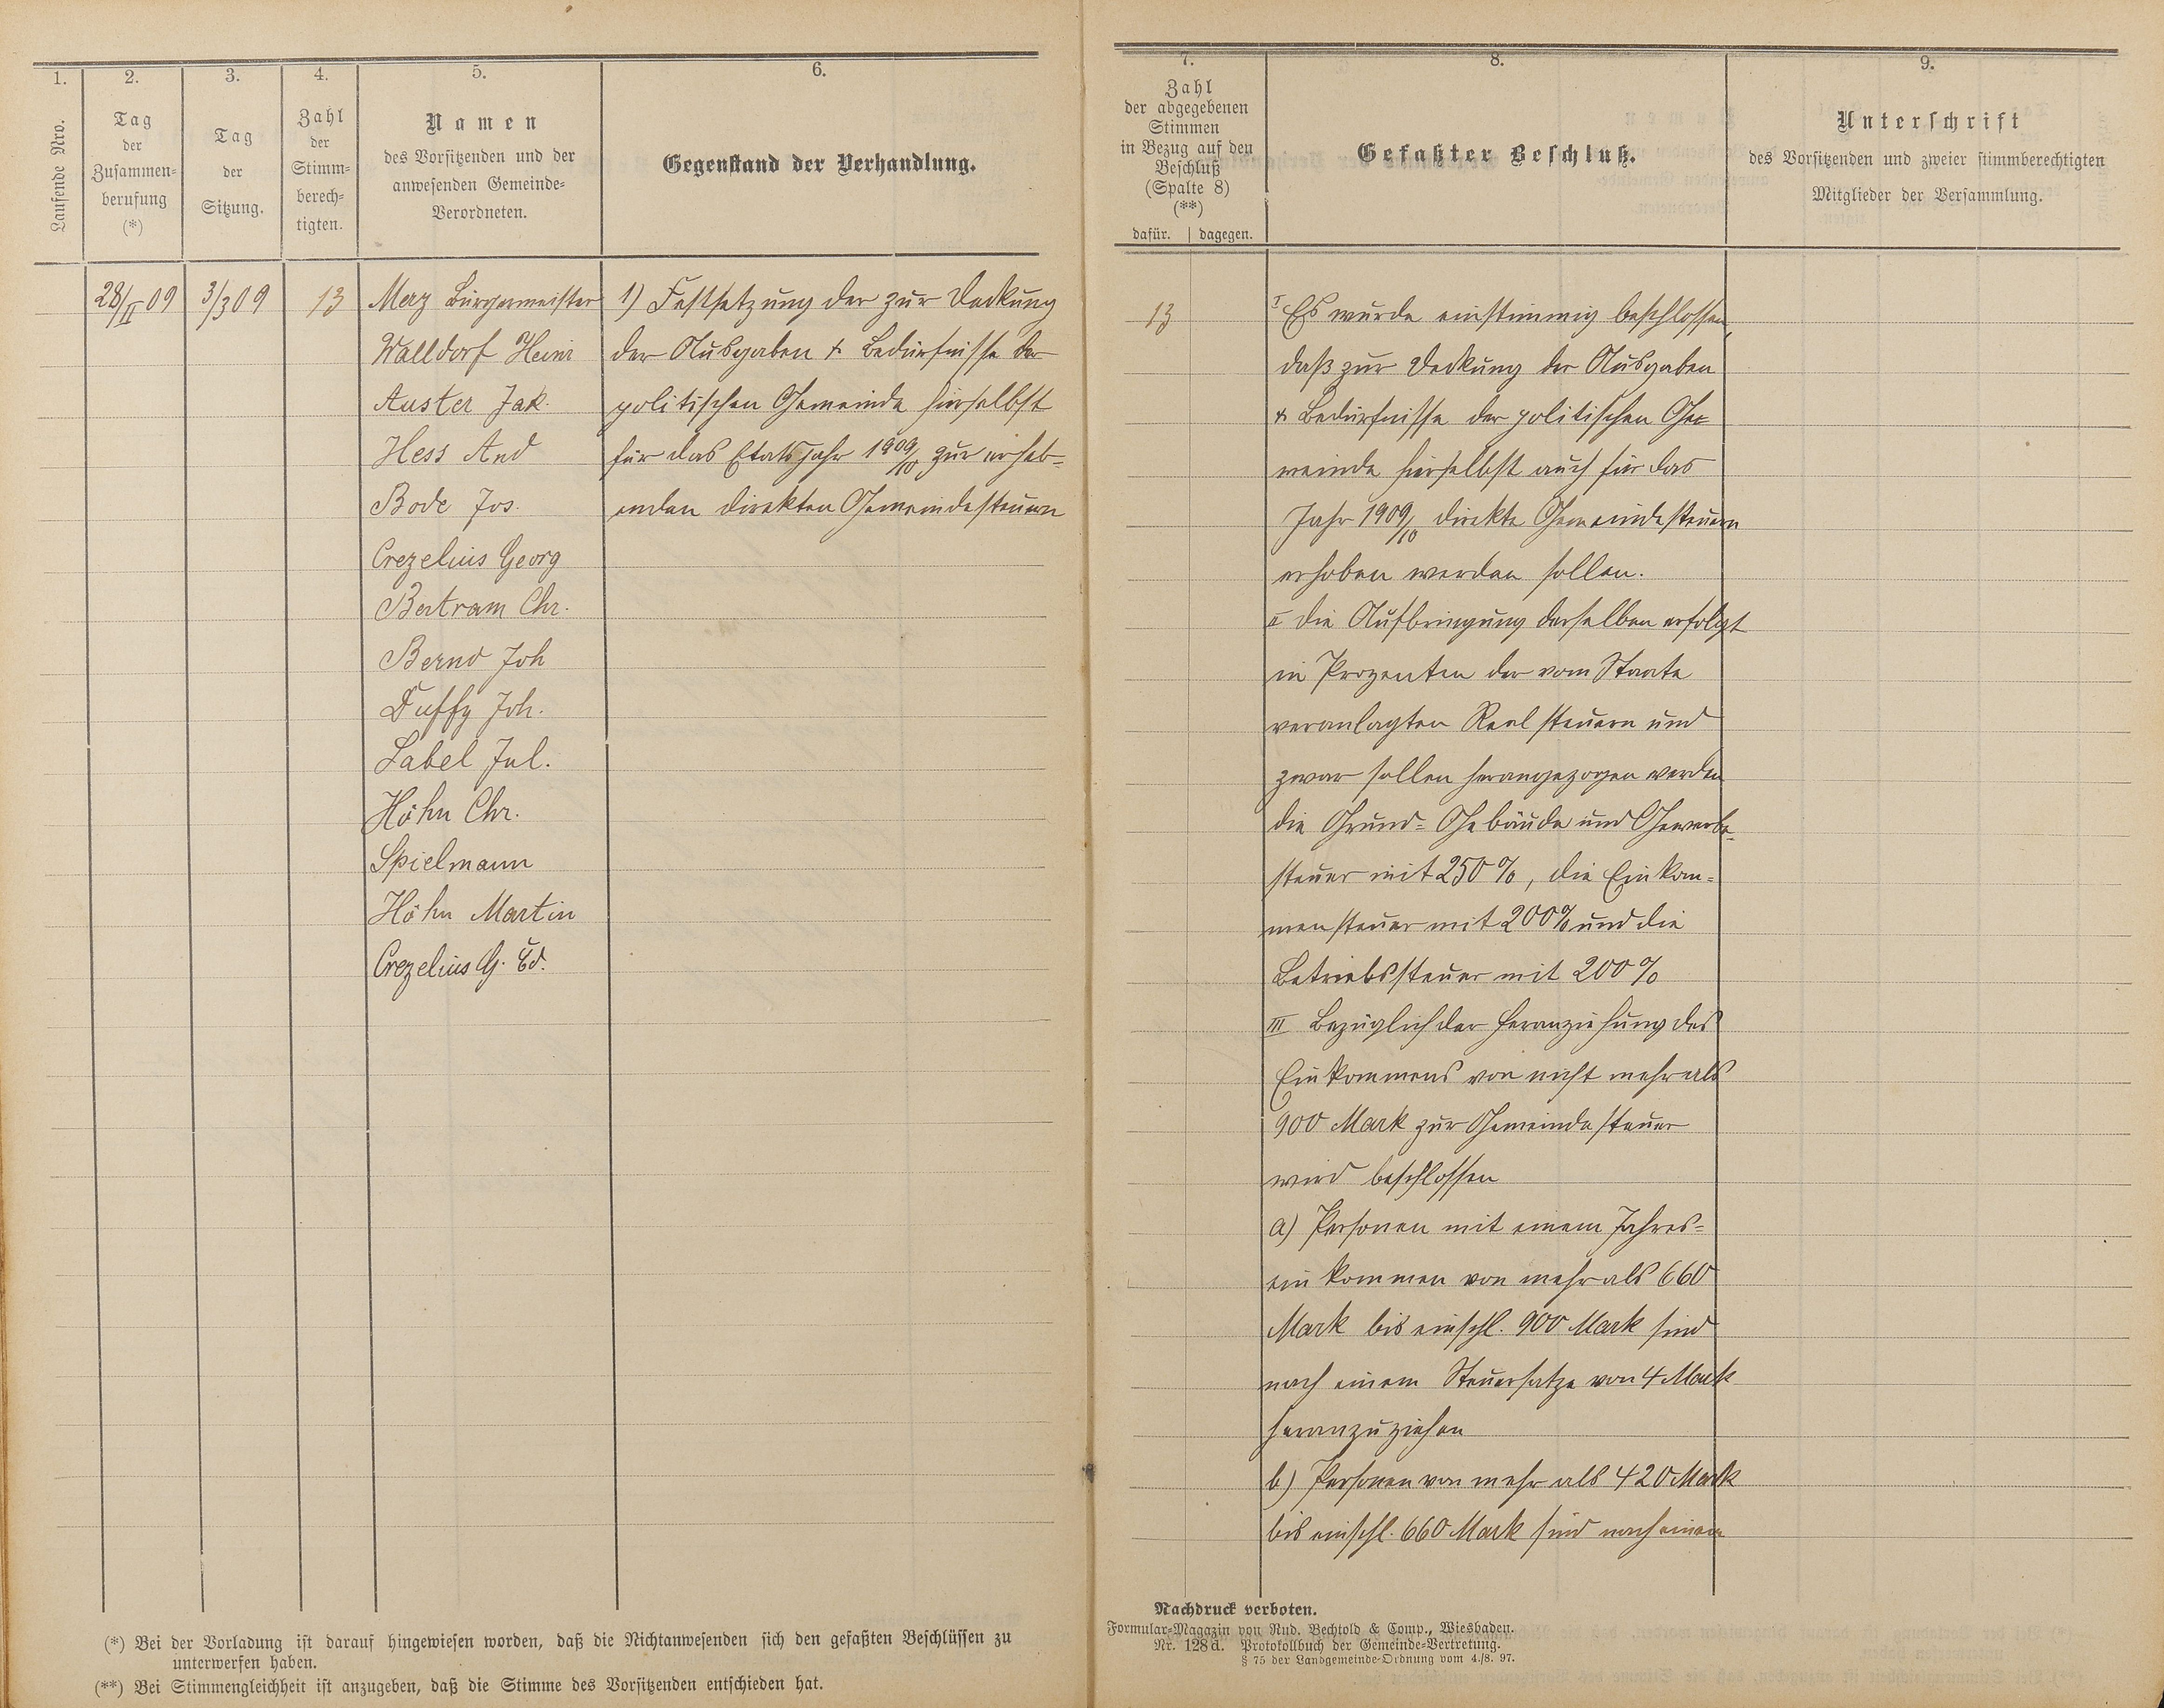 1.
Laufende Nro.
2.
Tag
der
Zusammen=
berufung
(*)
3.
Tag
der
Sitzung.
4.
Zahl
der
Stimm=
berech=
tigten.
5.
Namen
des Vorsitzenden und der
anwesenden Gemeinde=
Verordneten.
6.
Gegenstand der Verhandlung.
28/II 09
3/3 09
13
Merz Bürgermeister
Walldorf Heinr
Auster Jak.
Hess And
Bode Jos.
Crezelius Georg
Bertram Chr.
Bernd Joh
Duffy Joh.
Label Jul.
Höhn Chr.
Spielmann
Höhn Martin
Crezelius G. Ed.
1) Festsetzung der zur Deckung
der Ausgaben & Bedürfnisse der
politischen Gemeinde hierselbst
für das Etatsjahr 1909/10 zur erheb=
enden direkten Gemeindesteuern
(*) Bei der Vorladung ist darauf hingewiesen worden, daß die Nichtanwesenden sich den gefaßten Beschlüssen zu
unterwerfen haben.
(**) Bei Stimmengleichheit ist anzugeben, daß die Stimme des Vorsitzenden entschieden hat.
7.
Zahl
der abgegebenen
Stimmen
in Bezug auf den
Beschluß
(Spalte 8)
(**)
dafür. | dagegen.
8.
Gefaßter Beschluß.
9.
Unterschrift
des Vorsitzenden und zweier stimmberechtigten
Mitglieder der Versammlung.
13
I Es wurde einstimmig beschlossen,
daß zur Deckung der Ausgaben
& Bedürfnisse der politischen Ge=
meinde hierselbst auch für das
Jahr 1909/10 direkte Gemeindesteuern
erhoben werden sollen.
II Die Aufbringung derselben erfolgt
in Prozenten der vom Staate
veranlagten Realsteuern und
zwar sollen herangezogen werden
die Grund= Gebäude und Gewerbe=
steuer mit 250 %, die Einkom=
mensteuer mit 200 % und die
Betriebssteuer mit 200 %
III Bezüglich der Heranziehung des
Einkommens von nicht mehr als
900 Mark zur Gemeindesteuer
wird beschlossen
a) Personen mit einem Jahres=
einkommen von mehr als 660
Mark bis einschl. 900 Mark sind
nach einem Steuersatze von 4 Mark
heranzuziehen
b) Personen von mehr als 420 Mark
bis einschl. 660 Mark sind nach einem
Nachdruck verboten.
Formular=Magazin von Rud. Bechtold & Comp., Wiesbaden.
Nr. 128 d. Protokollbuch der Gemeinde=Vertretung.
§ 75 der Landgemeinde=Ordnung vom 4./8. 97.